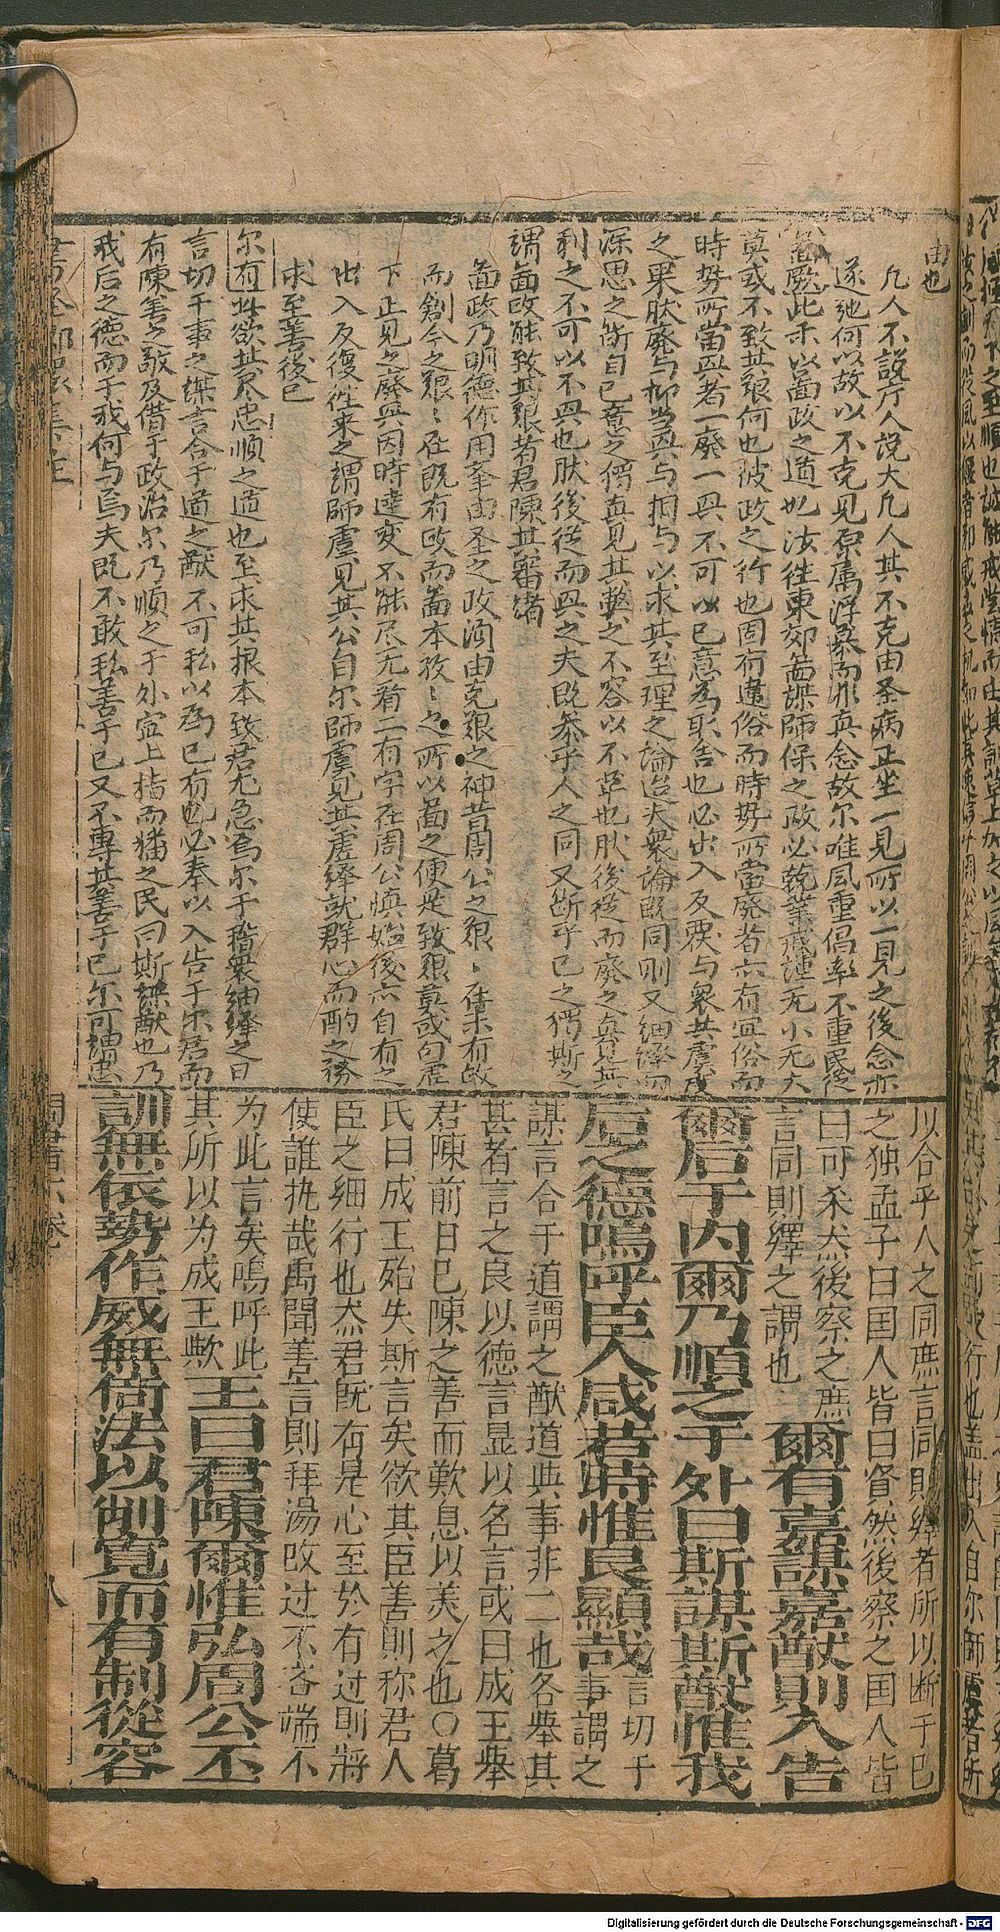 由也
凡人不說厅人說大凡人其不克由圣病正坐一見所以一見之後念亦
遂弛何以故以不克見原属浮慕而非真念故尔唯風重倡率不重民從
此不以啚政之道如汝往東郊啚謀師保之政必兢業戒謹无小无大
莫或不致其艰何也彼政之行也固有違俗而時势所當廢者亦有宜俗而
時势所當兴者一廢一兴不可以已意為取舍也必出入反覆与衆其虞度
之果肰廢与抑当兴与相与以求其至理之論迨夫衆論既同則又細繹而
深思之断自已意之獨真見其弊之不容以不革也肰後從而廢之真見其
利之不可以不兴也肰後從而兴之夫既叅乎人之同又断乎已之獨斯之
謂啚政能致其艰者君陳其審諸
啚政乃明德作用率由圣之政須由克艰之神昔周公之艰、在未有故
而創今之艰、在既有政而啚本孜、之所以啚之便是致艰莫或句虚
下正見之廢兴因時達変不能尽无着二有字在周公慎始後亦自有之
出入反復往来之謂師虞見其公自尔師虞見其虚繹就群心而酌之務
求至善後已
尔有 此欲其尽忠順之道也至求其根本致君尤急焉尔于稽衆紬繹之日
言切于事之謀言合于道之猷不可私以為已有也必奉以入告于尔君而
有陳善之敬及借于政治尔乃順之于外宣上指而播之民曰斯謀猷也乃
我后之德而于我何与焉夫既不敢私善于已又不專其善于已尔可謂忠
以合乎人之同庶言同則繹者所以断于巳
之独孟子曰国人皆曰賢然後察之国人皆
曰可杀然後察之庶
言同則繹之謂也 爾有嘉謀嘉猷則入告
爾后于内爾乃順之于外曰斯謀斯猷惟我
后之德嗚呼臣人咸若時惟良顯哉 言切于事謂之
謀言合于道謂之猷道与事非二也各举其
甚者言之良以徳言显以名言或曰成王举
君陳前日巳陳之善而歎息以美之也〇葛
氏曰成王殆失斯言矣欲其臣善則称君人
臣之细行也然君既有是心至於有过則將
使誰执哉禹聞善言則拜湯改过不吝端不
为此言矣嗚呼此
其所以为成王歟 王曰君陳爾惟弘周公丕
訓無依勢作威無倚法以削寬而有制從容
周書六卷 八
Digitalisierung gefördert durch die Deutsche Forschungsgemeinschaft - DFG